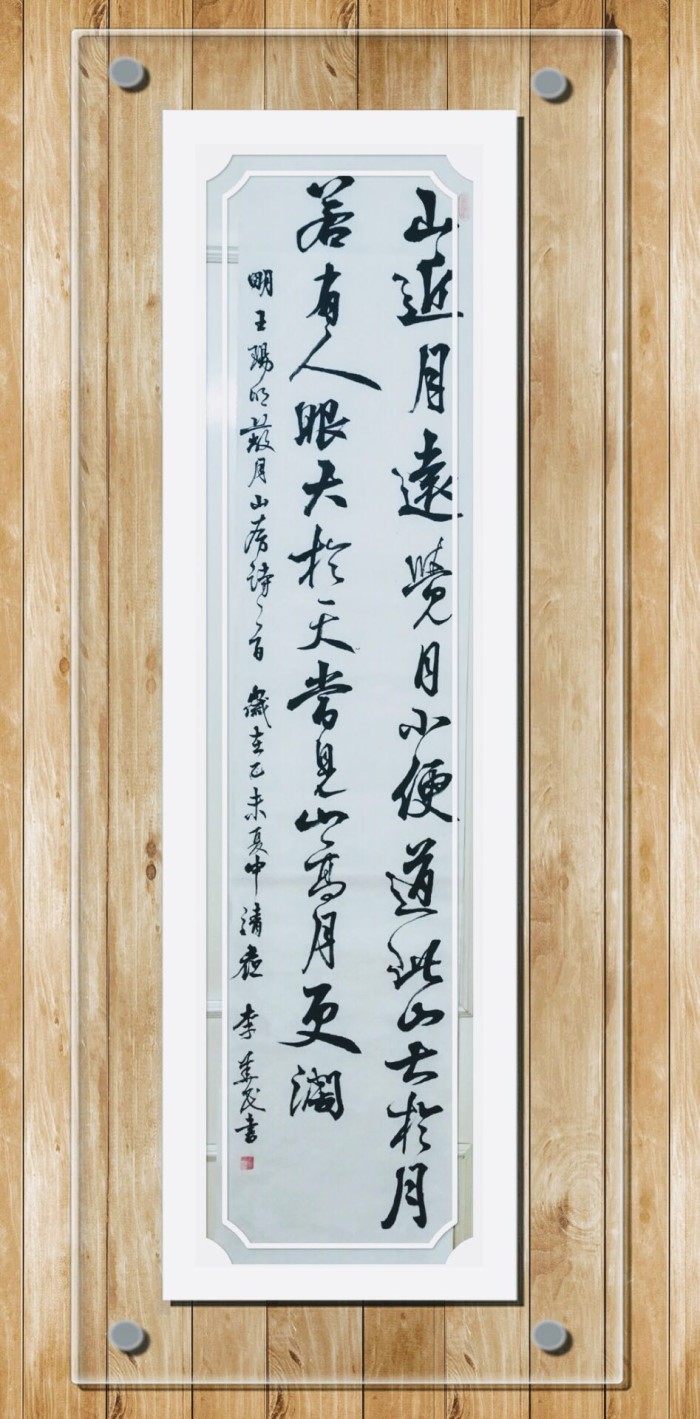 山近月遠覺月小便道此山大於月
若有人眼大於天當見山高月更濶
明王陽明蔽月山房詩一首 歲在乙未夏中 清 李 民書